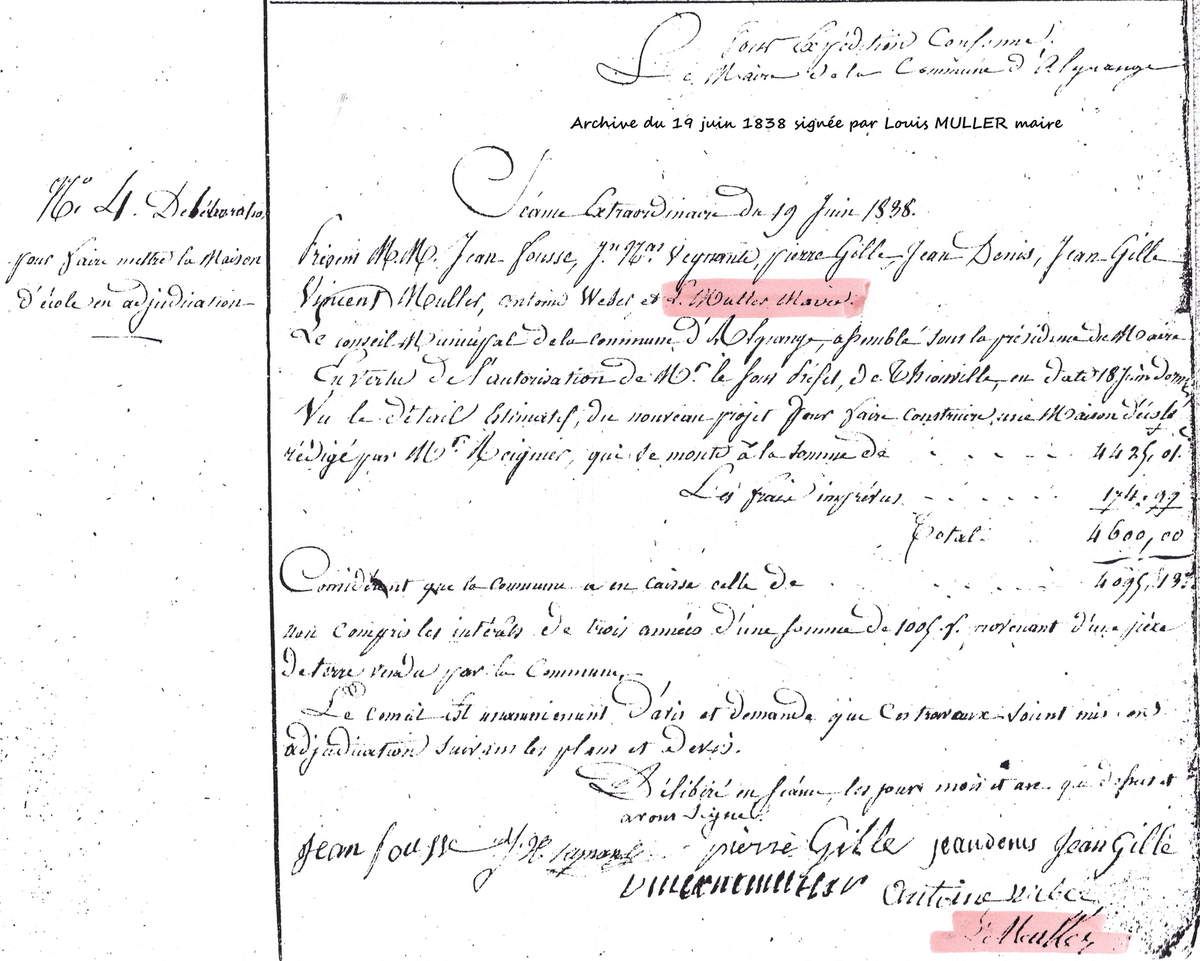 Pour Expédition Conforme.
Le Maire de la Commune d'Algrange
Archive du 19 juin 1838 signée par Louis MULLER maire
N.o 4. Déliberation
pour faire mettre la Maison
d'école en adjudication
Séance Extraordinaire du 19 Juin 1838.
Présens M.M. Jean fousse, J.n N.as Veynante, pierre Gille, Jean Denis, Jean Gille
Vincent Muller, antoine Weber et L. Muller Maire.
Le conseil Municipal de la commune d'Algrange, assemblé sous la présidence du Maire
En vertu de l'autorisation de M.r le Sous Préfet, de Thionville, en date 18 Juin
Vu le détail Estimatif, du nouveau projet pour faire construire une Maison d'école
rédigé par M.r que se monte à la somme de . . . . 4425,01.
Les frais imprévus . . . . 174,99
Total. 4600,00
Considérant que la commune a en caisse celle de . . . . 4095,13
non compris les intérêts de trois années d'une somme de 1005 f. provenant d'une pièce
de terre vendu par la Commune,
Le conseil Est unanimement D'avis et demande que Ces travaux soient mis en
adjudication suivant les plans et devis.
Délibéré en séance, les jours mois et an que dessus et
avons signé.
jean fousse J. N. pierre Gille jean denis Jean Gille
vincent muller antoine weber
L. Muller